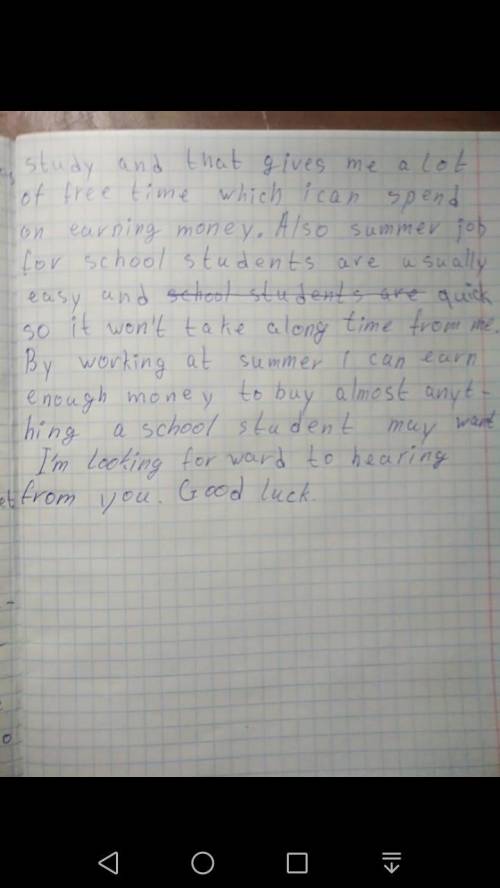 study and that gives me a lot
of free time which i can spend
on earning money. Also summer job
for school students are usually
easy and school students are quick
so it won't take along time from me.
By working at summer i can earn
enough money to buy almost anyt-
hing a school student may want
I'm looking for ward to hearing
from you. Good luck.